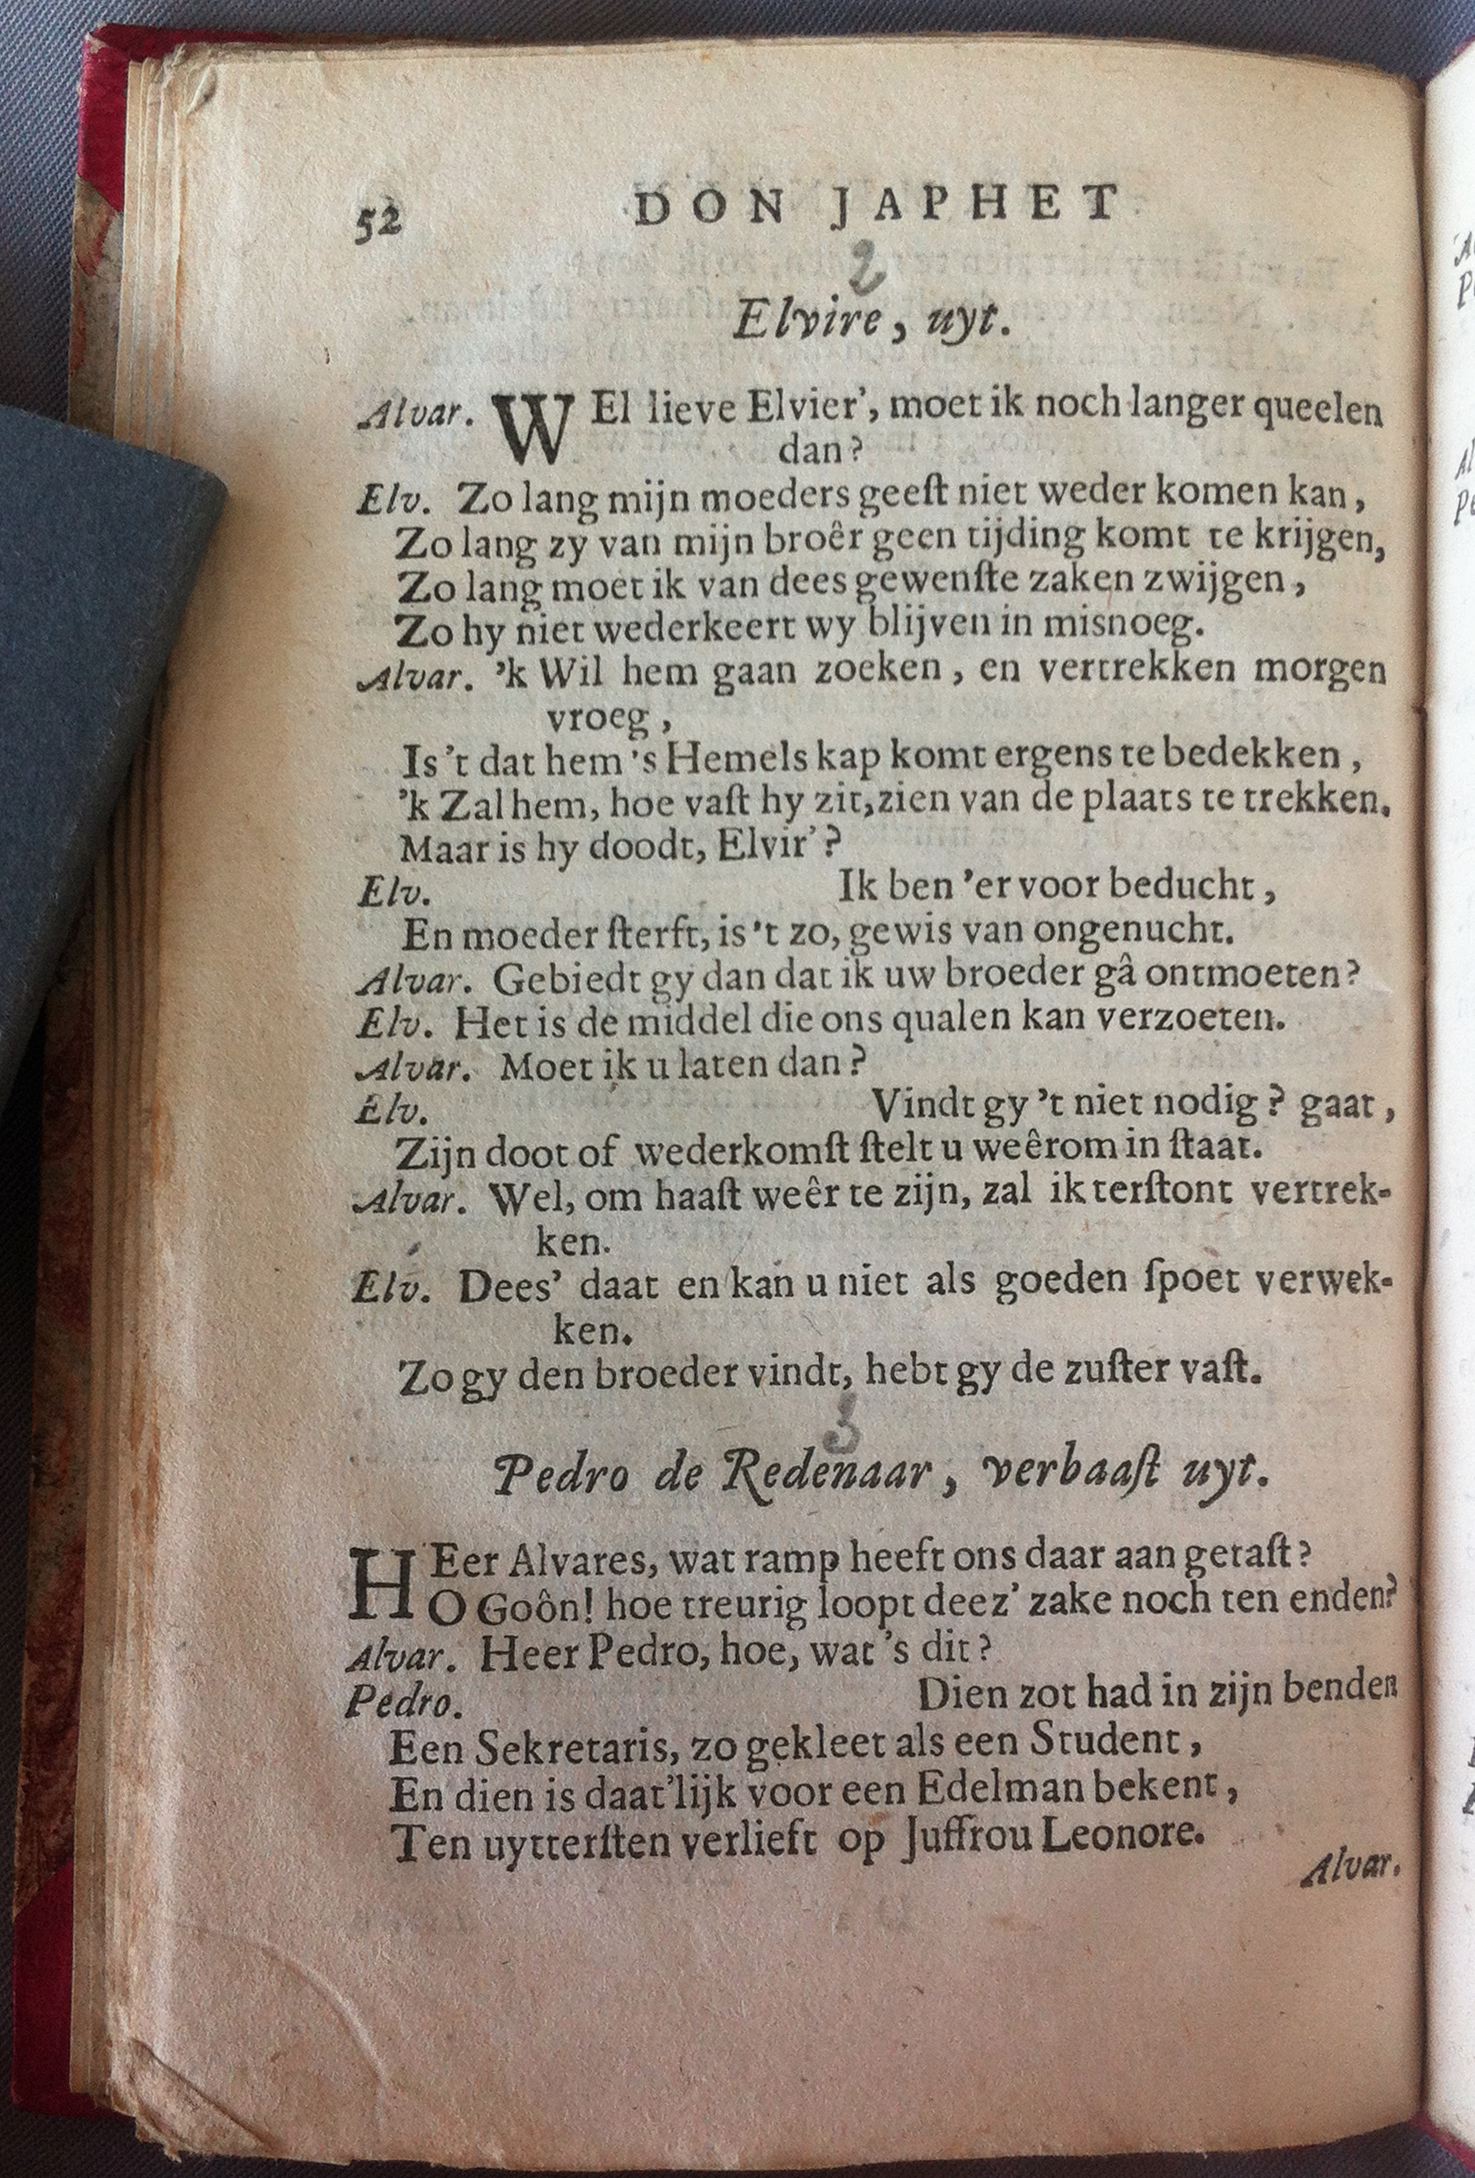 52 DON JAPHET
2
Elvire, uyt.
Alvar. WEl lieve Elvier', moet ik noch langer queelen
dan?
Elv. Zo lang mijn moeders geeſt niet weder komen kan,
Zo lang zy van mijn broêr geen tijding komt te krijgen,
Zo lang moet ik van dees gewenſte zaken zwijgen,
Zo hy niet wederkeert wy blijven in misnoeg.
Alvar. 'k Wil hem gaan zoeken, en vertrekken morgen
vroeg,
Is 't dat hem 's Hemels kap komt ergens te bedekken,
'k Zal hem, hoe vaſt hy zit, zien van de plaats te trekken.
Maar is hy doodt, Elvir'?
Elv. Ik ben 'er voor beducht,
En moeder ſterft, is 't zo, gewis van ongenucht.
Alvar. Gebiedt gy dan dat ik uw broeder gâ ontmoeten?
Elv. Het is de middel die ons qualen kan verzoeten.
Alvar. Moet ik u laten dan?
Elv. Vindt gy 't niet nodig? gaat,
Zijn doot of wederkomſt ſtelt u weêrom in ſtaat.
Alvar. Wel, om haaſt weêr te zijn, zal ik terſtont vertrek-
ken.
Elv. Dees' daat en kan u niet als goeden ſpoet verwek-
ken.
Zo gy den broeder vindt, hebt gy de zuſter vaſt.
3
Pedro de Redenaar, verbaaſt uyt.
HEer Alvares, wat ramp heeft ons daar aan getaſt?
O Goôn! hoe treurig loopt deez' zake noch ten enden?
Alvar. Heer Pedro, hoe, wat 's dit?
Pedro. Dien zot had in zijn benden
Een Sekretaris, zo gekleet als een Student,
En dien is daat'lijk voor een Edelman bekent,
Ten uytterſten verlieft op Juffrou Leonore.
Alvar.